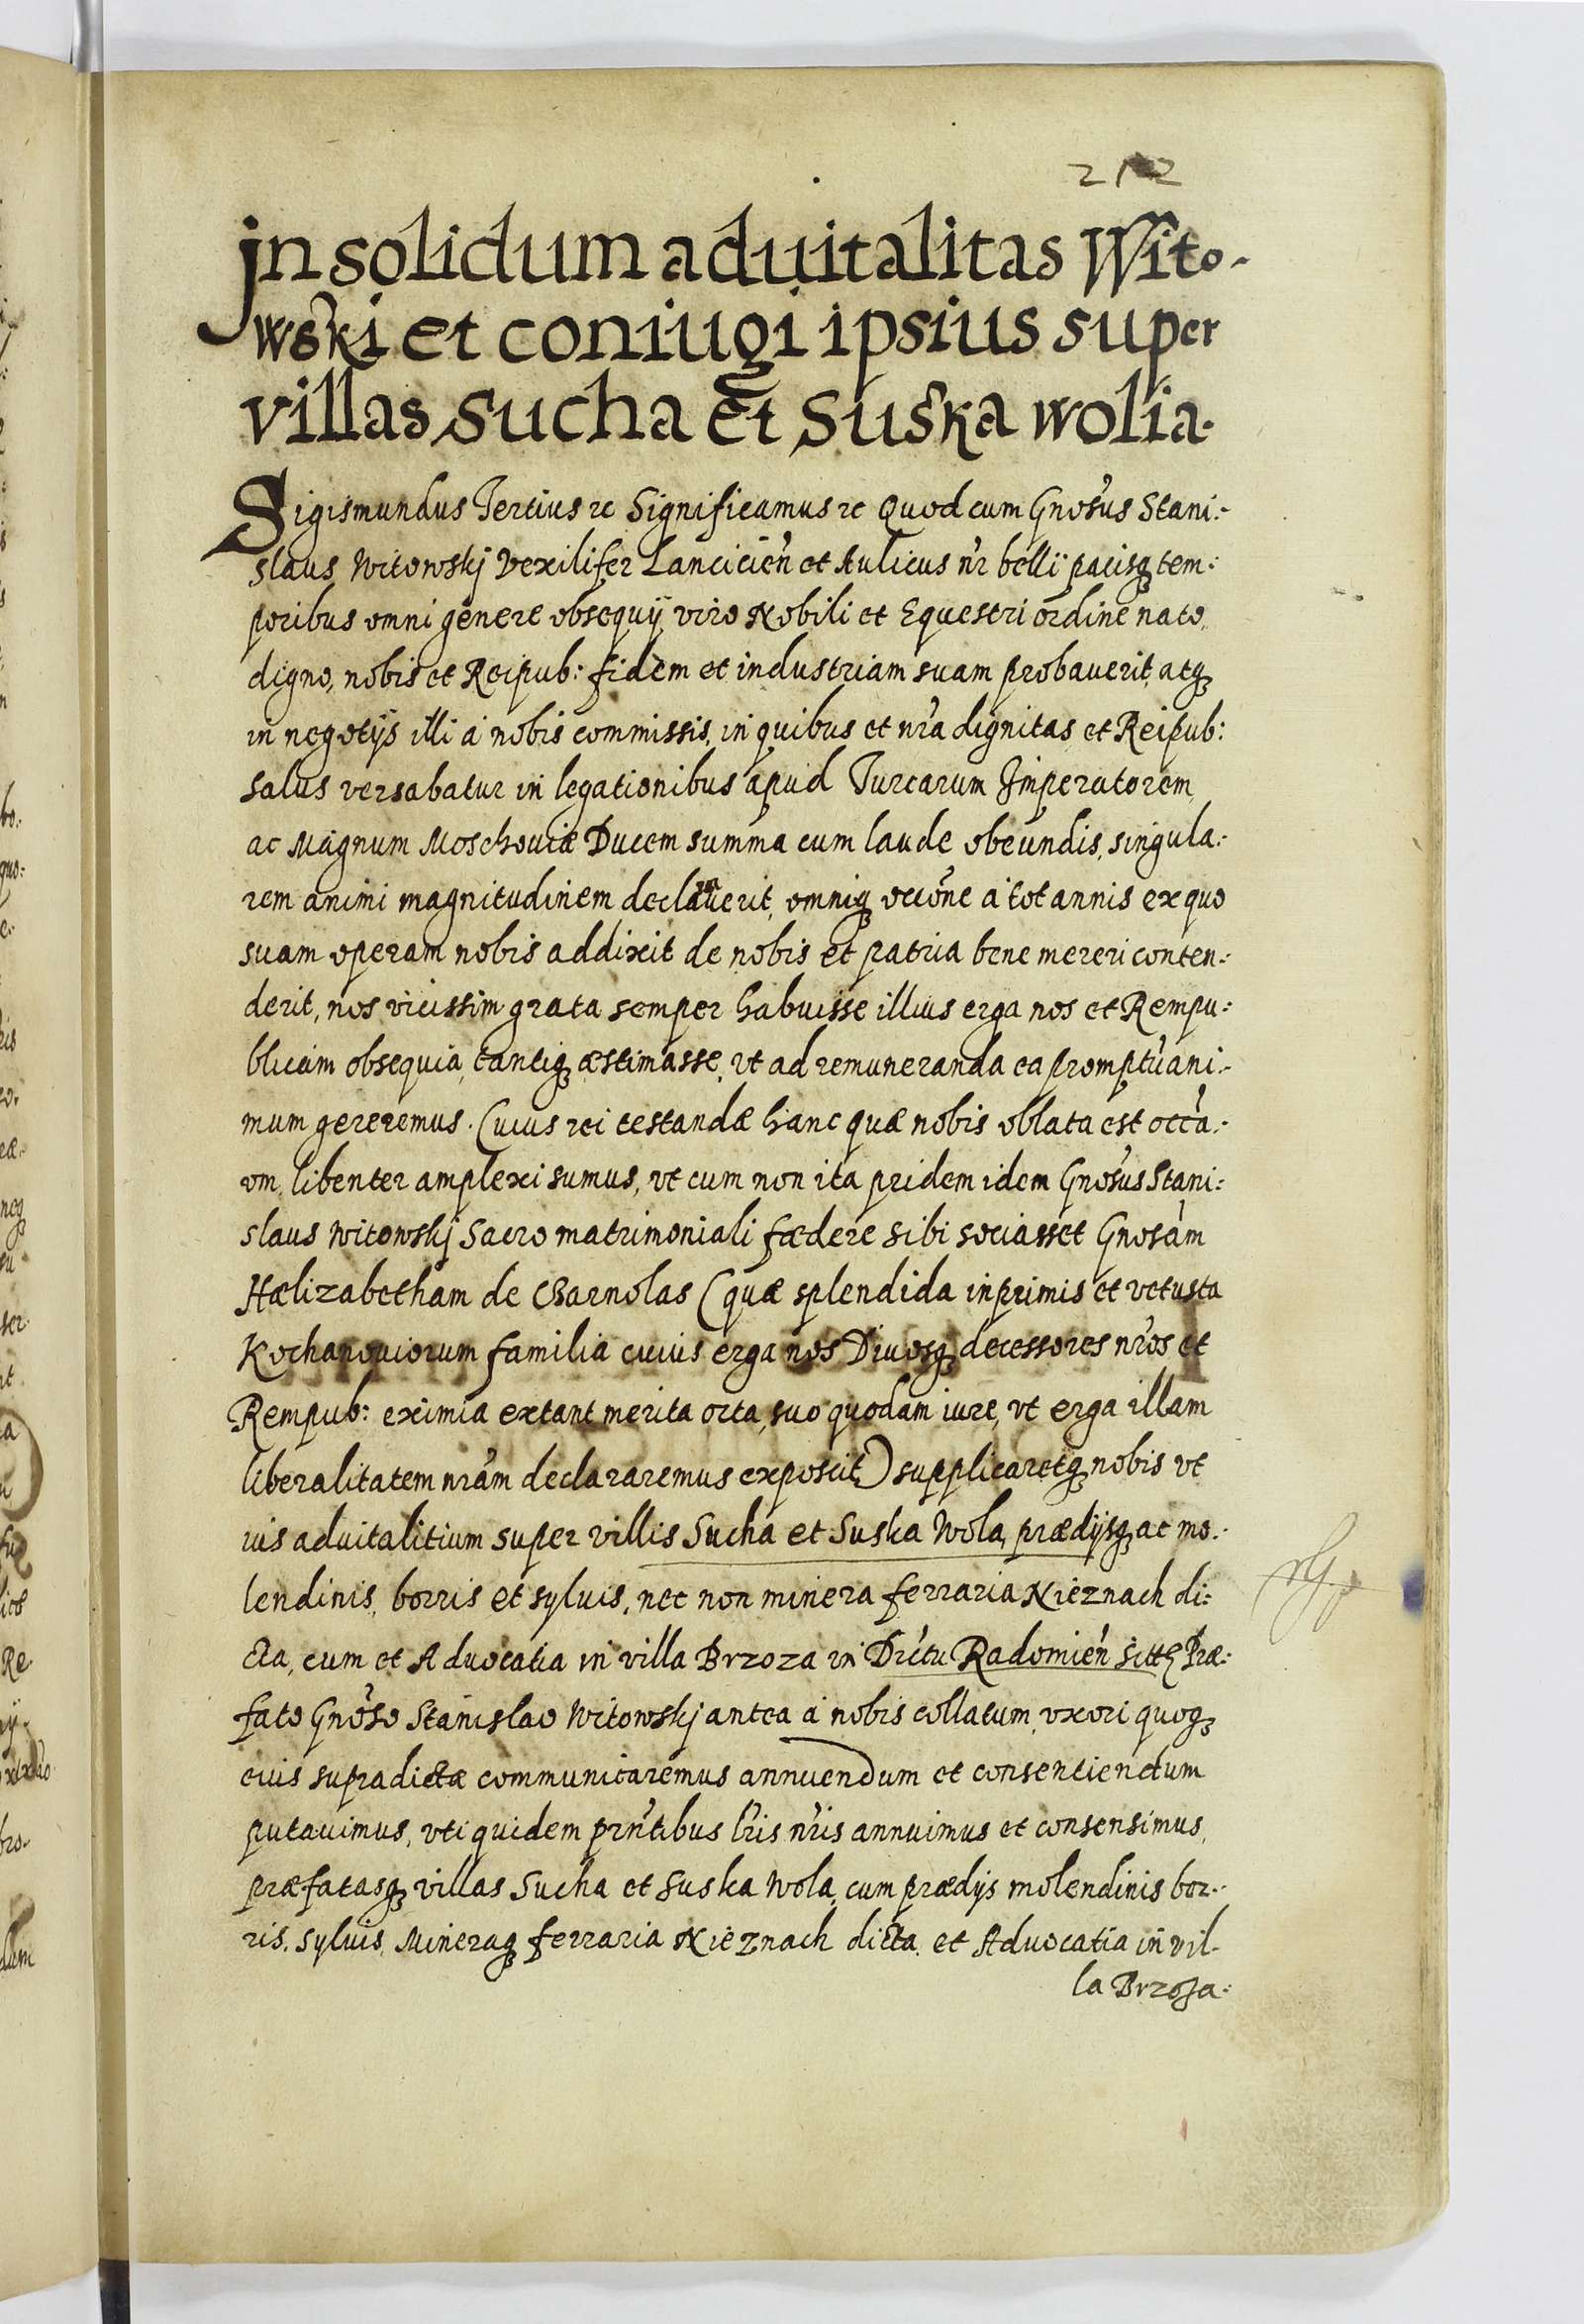 212
Jn solidum aduitalitas Wito-
wski et coniugi ipsius super
villas Sucha et Suska wolia.
Sigismundus Tertius rc Significamus rc Quod cum Gnosus Stani:-
slaus Witowskj Vexilifer Lancicien et Aulicus nr belli pacisq tem:
poribus omni genere obsequÿ viro Nobili et Equestri ordine nato
digno, nobis et Reipub: fidem et industriam suam probauerit, atq
in negotÿs illi à nobis commissis, in quibus et nra dignitas et Reipub:
salus versabatur in legationibus apud Turcarum Imperatorem
ac Magnum Moschouiæ Ducem summa cum laude obeundis, singula:-
rem animi magnitudinem declarauerit, omniq occone à tot annis ex quo
suam operam nobis addixit de nobis et patria bene mereri conten:-
derit, nos vicissim grata semper habuisse illius erga nos et Rempu:
blicam obsequia, tantiq æstimasse, vt ad remuneranda ea promptu ani:-
mum gereremus. Cuius rei testandæ hanc quæ nobis oblata est occa:-
om, libenter amplexi sumus, vt cum non ita pridem idem Gnosus Stani:
slaus Witowskj Sacro matrimoniali fœdere sibi sociasset Gnosam
Hælizabetham de Charnolas (quæ splendida inprimis et vetusta
Kochanouiorum familia cuius erga nos Diuosq decessores nros et
Rempub: eximia extant merita orta, suo quodam iure, vt erga illam
liberalitatem nram declararemus exposcit) supplicaretq nobis vt
ius aduitalitium super villis Sucha et Suska Wola, prædÿsq ac mo:-
lendinis, borris et syluis, nec non minera ferraria Nieznach di:
cta, cum et Aduocatia in villa Brzoza in Dictu Radomien sitte Præ:
fato Gnoso Stanislao Witowskj antea à nobis collatum, vxori quoq
eius supradictæ communicaremus annuendum et consentiendum
putauimus, vti quidem prntibus lris nris annuimus et consensimus,
præfatasq villas Sucha et Suska Wola, cum prædÿs molendinis bor:-
ris, syluis, Mineraq ferraria Nieznach dicta, et Aduocatia in vil-
la Brzoza: